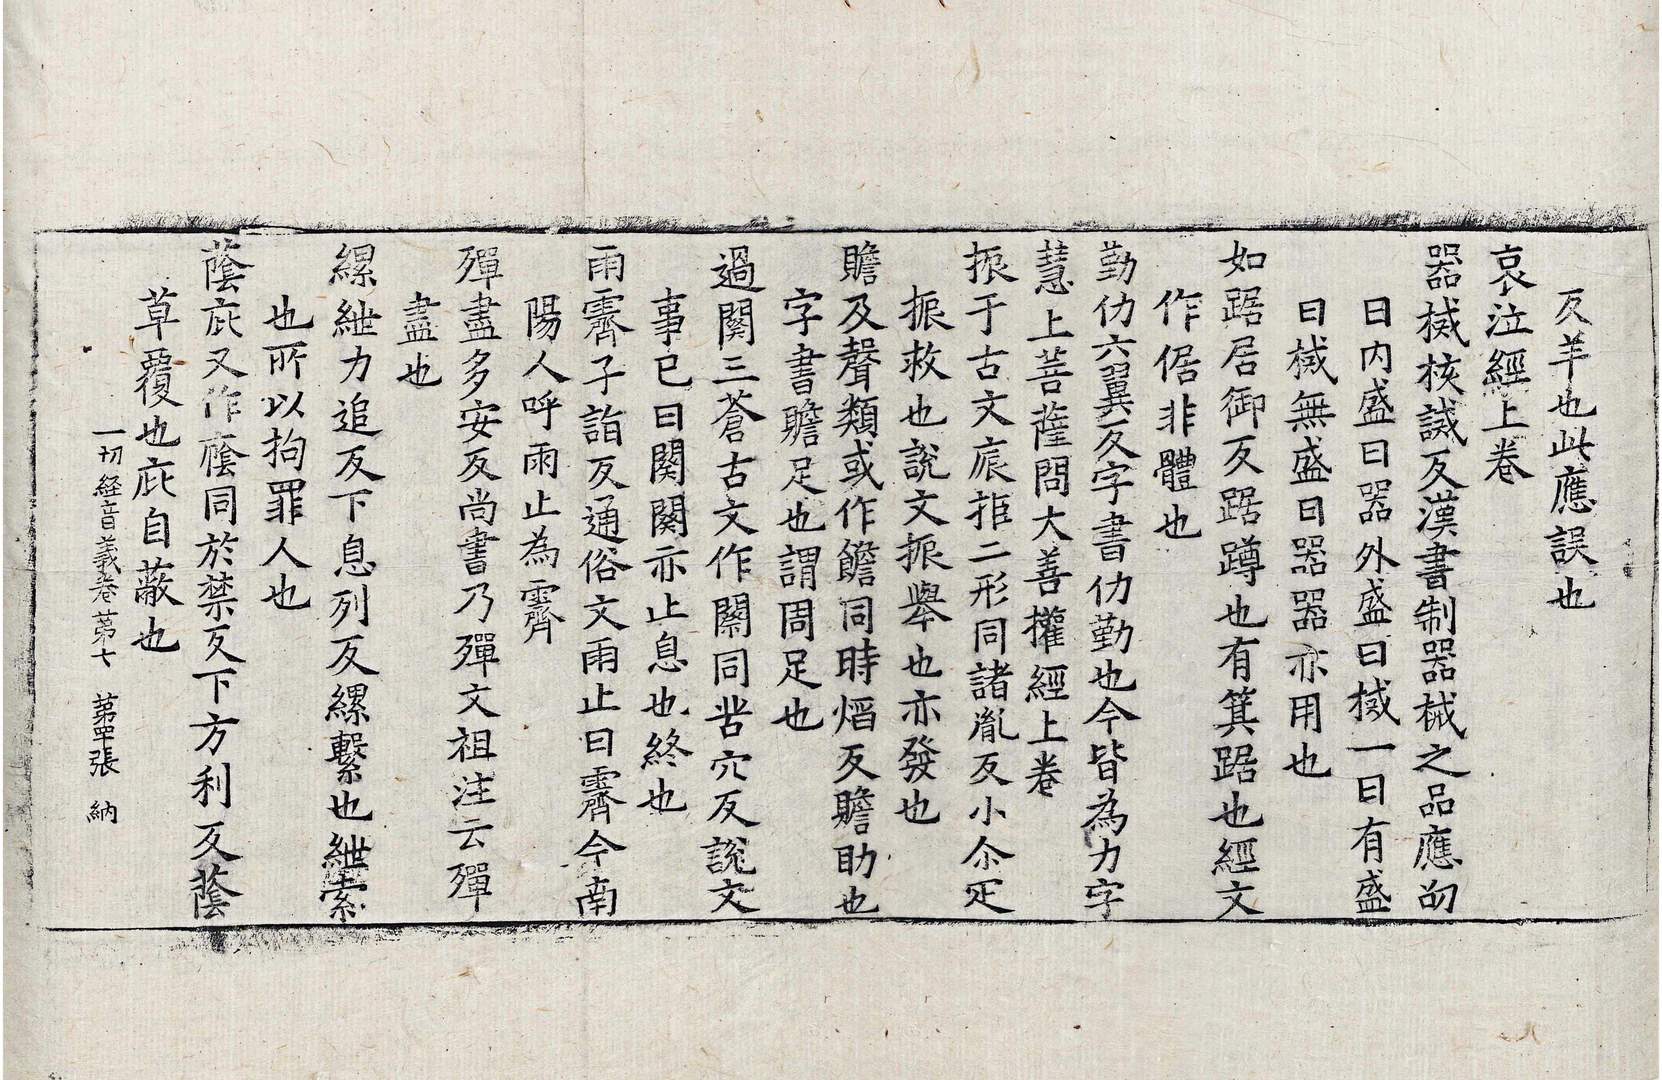 反羊也此應誤也
哀泣經上卷
器椷核誡反漢書制器械之品應劭
曰內盛曰器外盛曰椷一曰有盛
曰椷無盛曰器器亦用也
如踞居御反踞蹲也有箕踞也經文
作倨非體也
勤仂六翼反字書仂勤也今皆為力字
慧上菩薩問大善權經上卷
振于古文㧳拒二形同諸胤反小尒疋
振救也說文振舉也亦發也
贍及聲類或作饍同時熖反贍助也
字書贍足也謂周足也
過闋三蒼古文作闋同苦穴反說文
事已曰闋闋亦止息也終也
雨霽子詣反通俗文雨止曰霽今南
陽人呼雨止為霽
殫盡多安反尚書乃殫文祖注云殫
盡也
縲紲力追反下息列反縲繫也紲索
也所以拘罪人也
蔭庇又作廕同於禁反下方利反蔭
草覆也庇自蔽也
一切経音義卷苐七 苐罕張 納